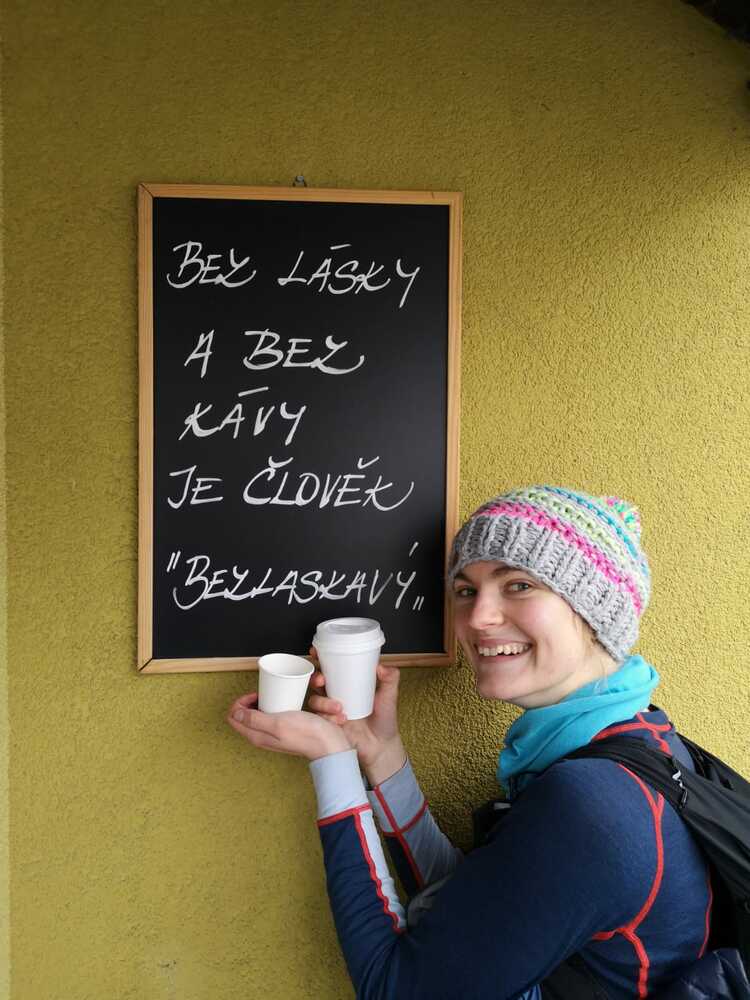 BEZ LÁSKY
A BEZ
KÁVY
JE ČLOVĚK
"BEZLASKAVÝ„